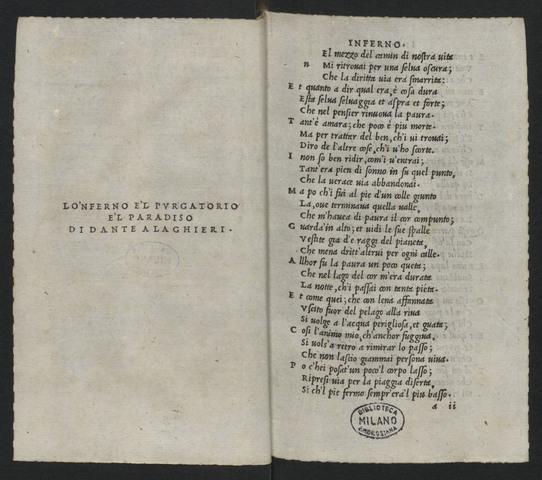 LO'NFERNO E'L PVRGATORIO
E'L PARADISO
DI DANTE ALAGHIERI.
INFERNO.
El mezzo del camin di nostra uita
n Mi ritrouai per una selua oscura;
Che la diritta uia era smarrita:
E t quanto a dir qual era, è cosa dura
Esta selua seluaggia et aspra et forte;
Che nel pensier rinuoua la paura.
T ant'è amara; che poco è piu morte.
Ma per trattar del ben, ch'i ui trouai;
Diro de l'altre cose, ch'i u'ho scorte.
I non so ben ridir, com'i u'entrai;
Tant'era pien di sonno in su quel punto,
Che la uerace uia abbandonai.
M a po ch'i fui al pie d'un colle giunto
La, oue terminaua quella ualle,
Che m'hauea di paura il cor compunto;
G uarda'in alto; et uidi le sue spalle
Vestite gia d'e raggi del pianeta,
Che mena dritt'altrui per ogni calle.
A llhor fu la paura un poco queta;
Che nel lago del cor m'era durata
La notte, ch'i passai con tanta pieta.
E t come quei; che con lena affannata
Vscito fuor del pelago alla riua
Si uolge a l'acqua perigliosa, et guata;
C osi l'animo mio, ch'anchor fuggiua,
Si uols'a retro a rimirar lo passo;
Che non lascio giammai persona uiua.
P o c'hei posat'un poco'l corpo lasso;
Ripresi uia per la piaggia diserta,
Si ch'l pie fermo sempr'era'l piu basso.
a ii
BIBLIOTECA
MILANO
AMBROSIANA